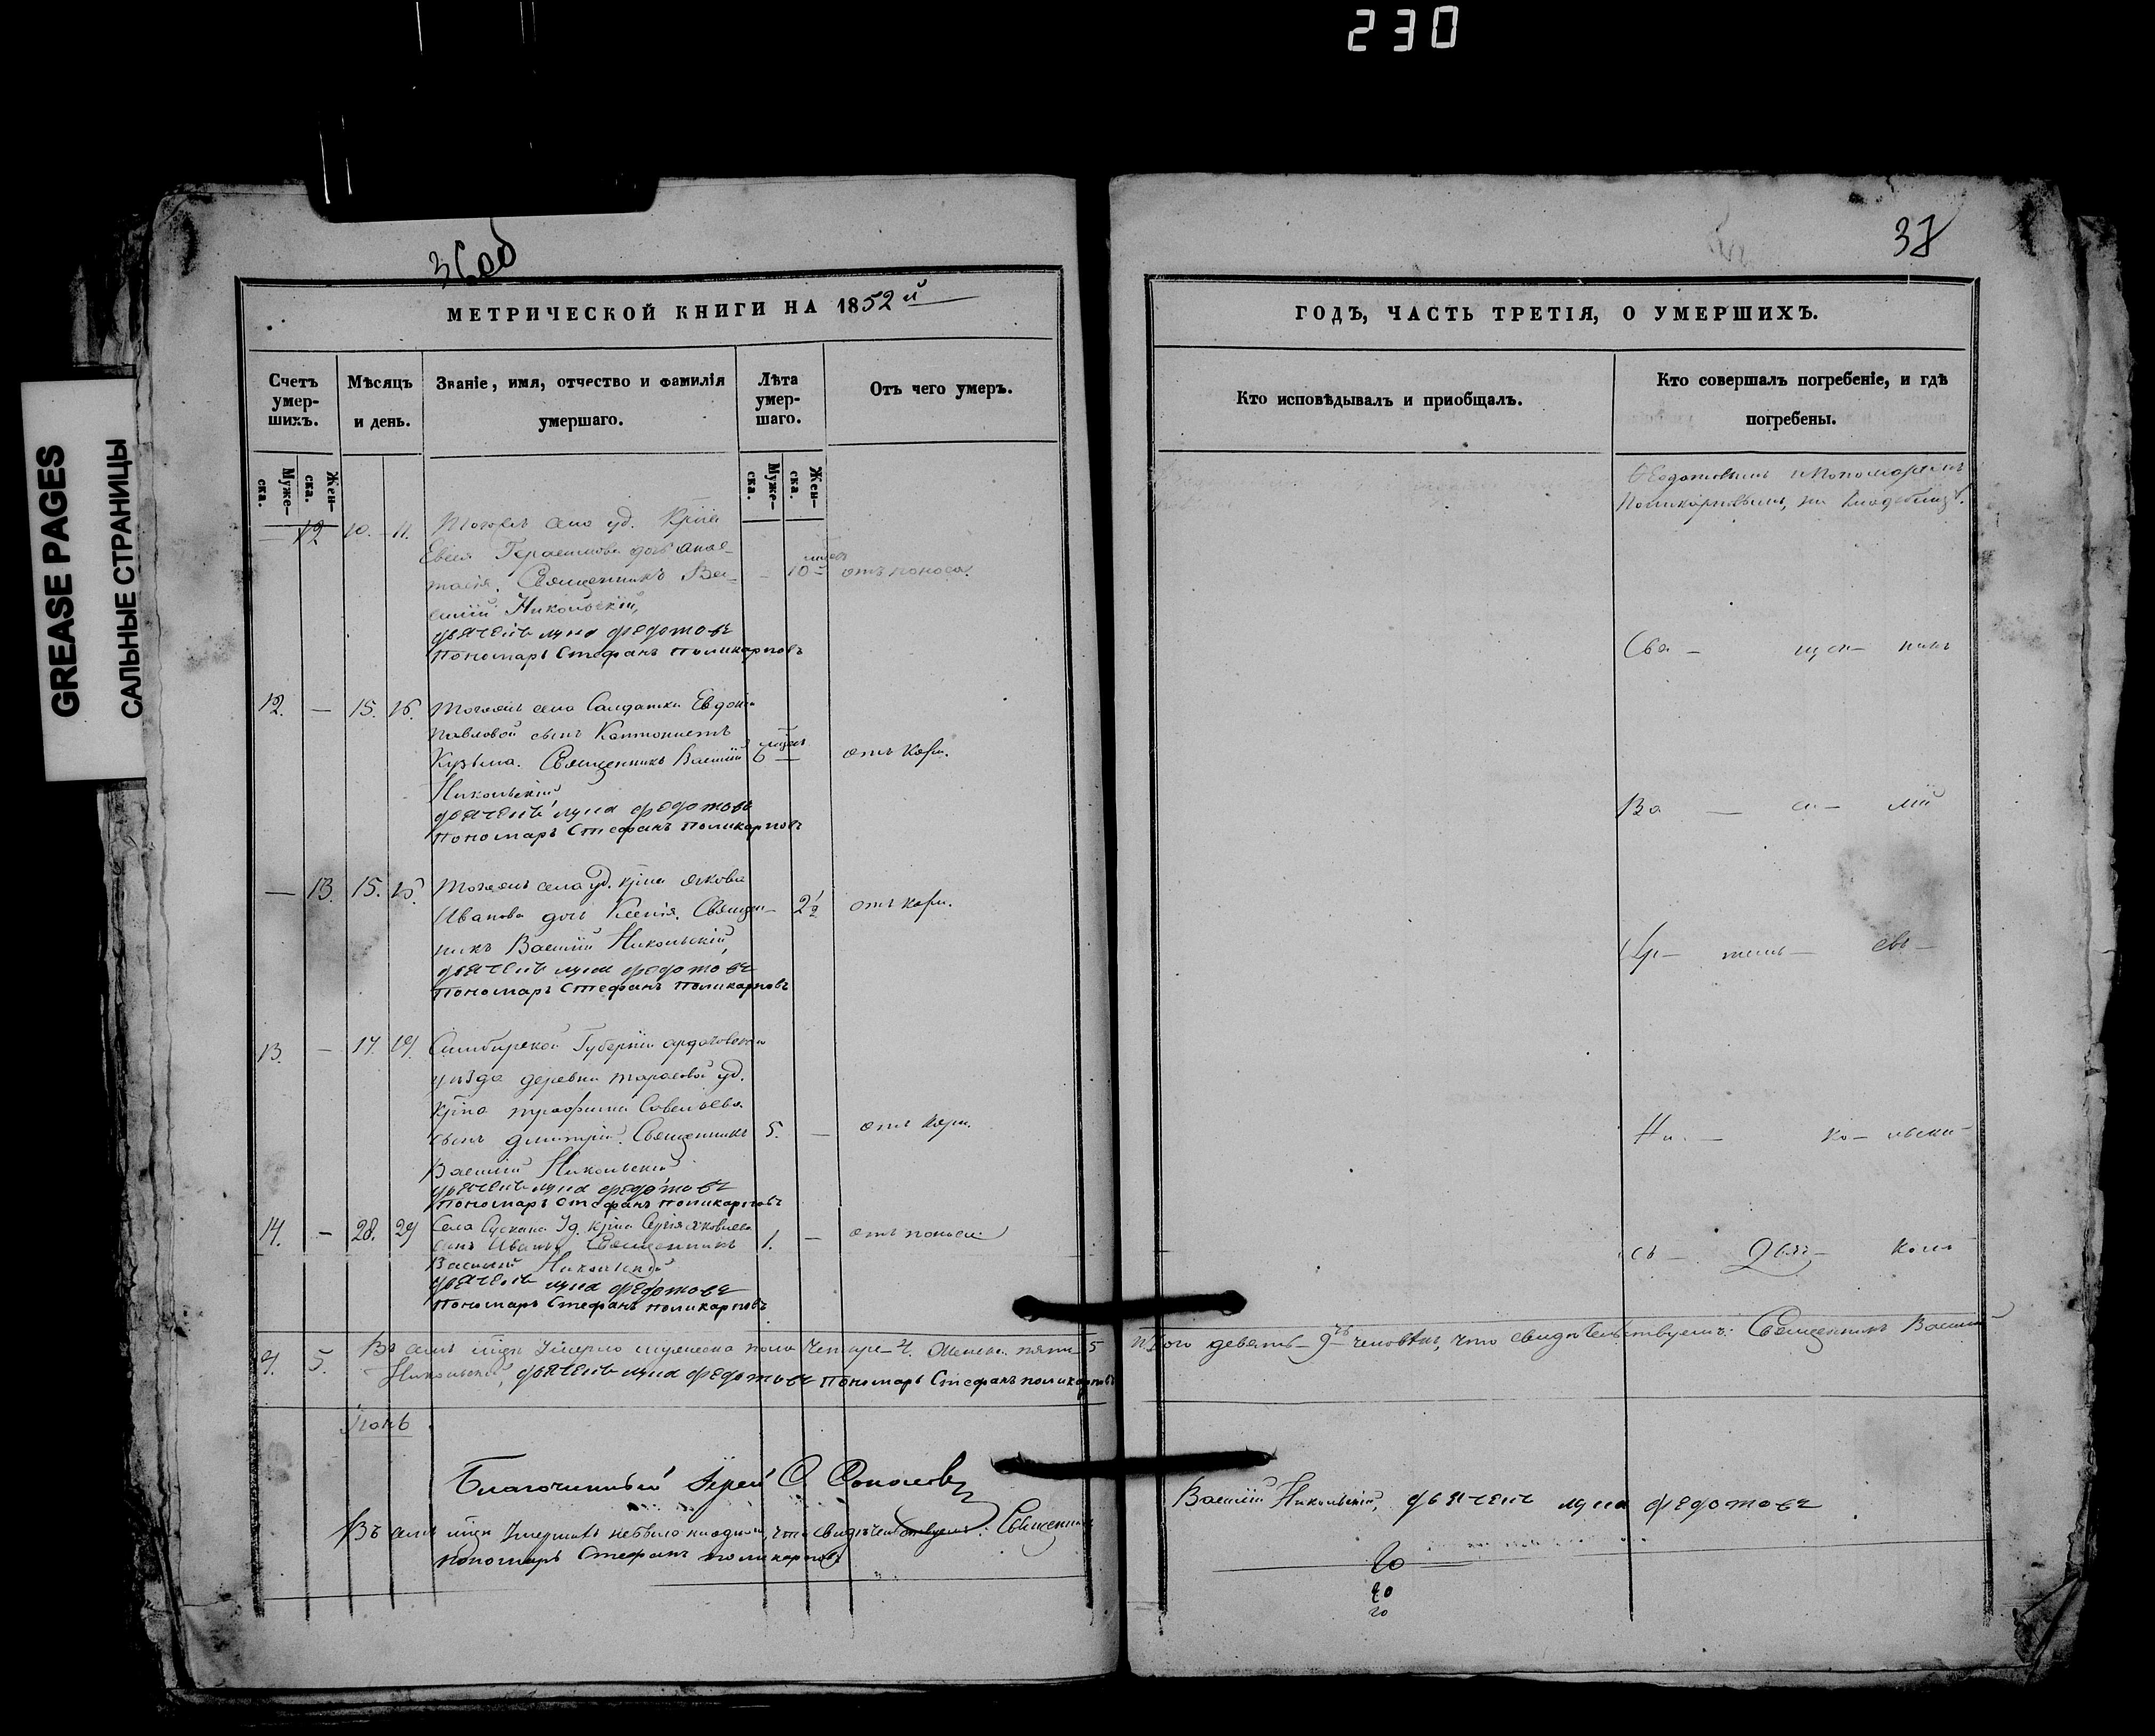 230
GREASE PAGES
САЛЬНЫЕ СТРАНИЦЫ
36 об
МЕТРИЧЕСКОЙ КНИГИ НА 1852й
Счетъ умер-шихъ.
Муже-ска.
Жен-ска.
Мѣсяцъ и день.
Званіе, имя, отчество и фамилія
умершаго.
Лѣта умер-шаго.
Муже-ска.
Жен-ска.
Отъ чего умеръ.
— 12 10. 11. Тогожъ уд. Крĩна
Герасимова дочь Анас-
тасія. Священникъ Ва- — 10 отъ поноса.
силій Никольскій,
дьячекъ Лука Федотовъ
пономарь Стефанъ Поликарповъ
12. — 15. 16. Тогожъ села Солдатки Евдокіи
Павловой сынъ Кантонистъ
Кузьма. Священникъ Василій 6 — отъ кори.
Никольскій
дьячекъ Лука Федотовъ
пономарь Стефанъ Поликарповъ
— 13. 15. 16. Тогожъ села уд. крĩна Якова
Иванова дочь Ксенія. Священ- 2 1/2 отъ кори.
никъ Василій Никольскій,
дьячекъ Лука Федотовъ
пономарь Стефанъ Поликарповъ
13. — 17. 19. Симбирской Губерніи Ардатовскаго
уѣзда деревни Тарасовой уд.
крĩна Трофима Савельева
сынъ Дмитрій. Священникъ 5. — отъ кори.
Василій Никольскій
дьячекъ Лука Федотовъ
пономарь Стефанъ Поликарповъ
14. — 28. 29 Села Уд. крĩна Яковлева
сынъ Иванъ Священникъ 1. — отъ поноса
Василій Никольскій
дьячекъ Лука Федотовъ
пономарь Стефанъ Поликарповъ
4. 5. Въ семъ умерло мужеска пола четыре 4. женска пять 5
Никольскій, дьячекъ Лука Федотовъ пономарь Стефанъ Поликарповъ
Благочинный Іерей
Въ семъ умершихъ небыло что свидѣтельствуемъ: Священникъ
пономарь Стефанъ Поликарповъ
37
ГОДЪ, ЧАСТЬ ТРЕТІЯ, О УМЕРШИХЪ.
Кто исповѣдывалъ и приобщалъ.
Кто совершалъ погребеніе, и гдѣ
погребены.
Ѳедотовымъ и Пономаремъ
Поликарповымъ, на кладбищѣ.
Свя — щен — никъ
Ва — си — лій
Ни. — ко — льскій
съ — Дьяч — комъ
Итого девять 9 человѣкъ, что свидѣтельствуемъ: Священникъ Василій
Василій Никольскій, дьячекъ Лука Федотовъ